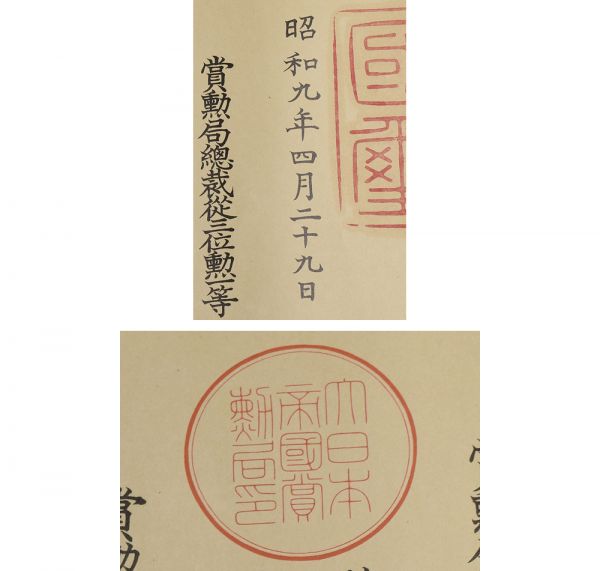 昭和九年四月二十九日
賞勲局總裁從三位勲一等
大日本
帝國賞
勲局印